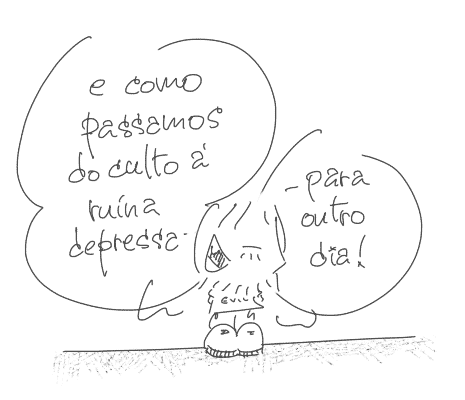 e como
passamos
do culto à
ruína
depressa -
- para
outro
dia!